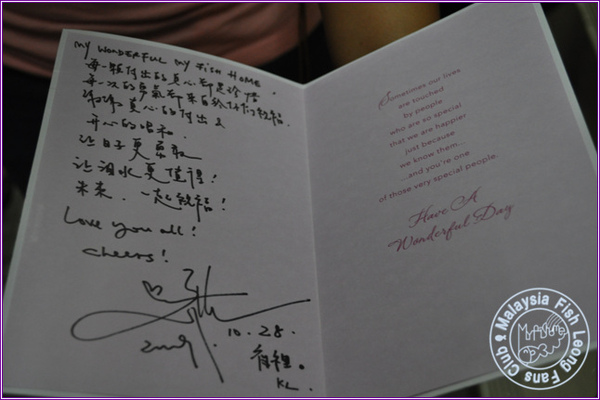 MY WONDERFUL MY FISH HOME.
每一顆付出的真心都是珍惜
每一次的勇氣都來自於你們的祝福.
真心的付出
开心的唱和.
让日子更勇敢
让泪水更值得!
未来. 一起祝福!
Love you all!
Cheers!
10.28.
2009.
KL
Sometimes our lives
are touched
by people
who are so special
that we are happier
just because
we know them...
...and you're one
of those very special people.
Have A
Wonderful Day
Malaysia Fish Leong Fans Club